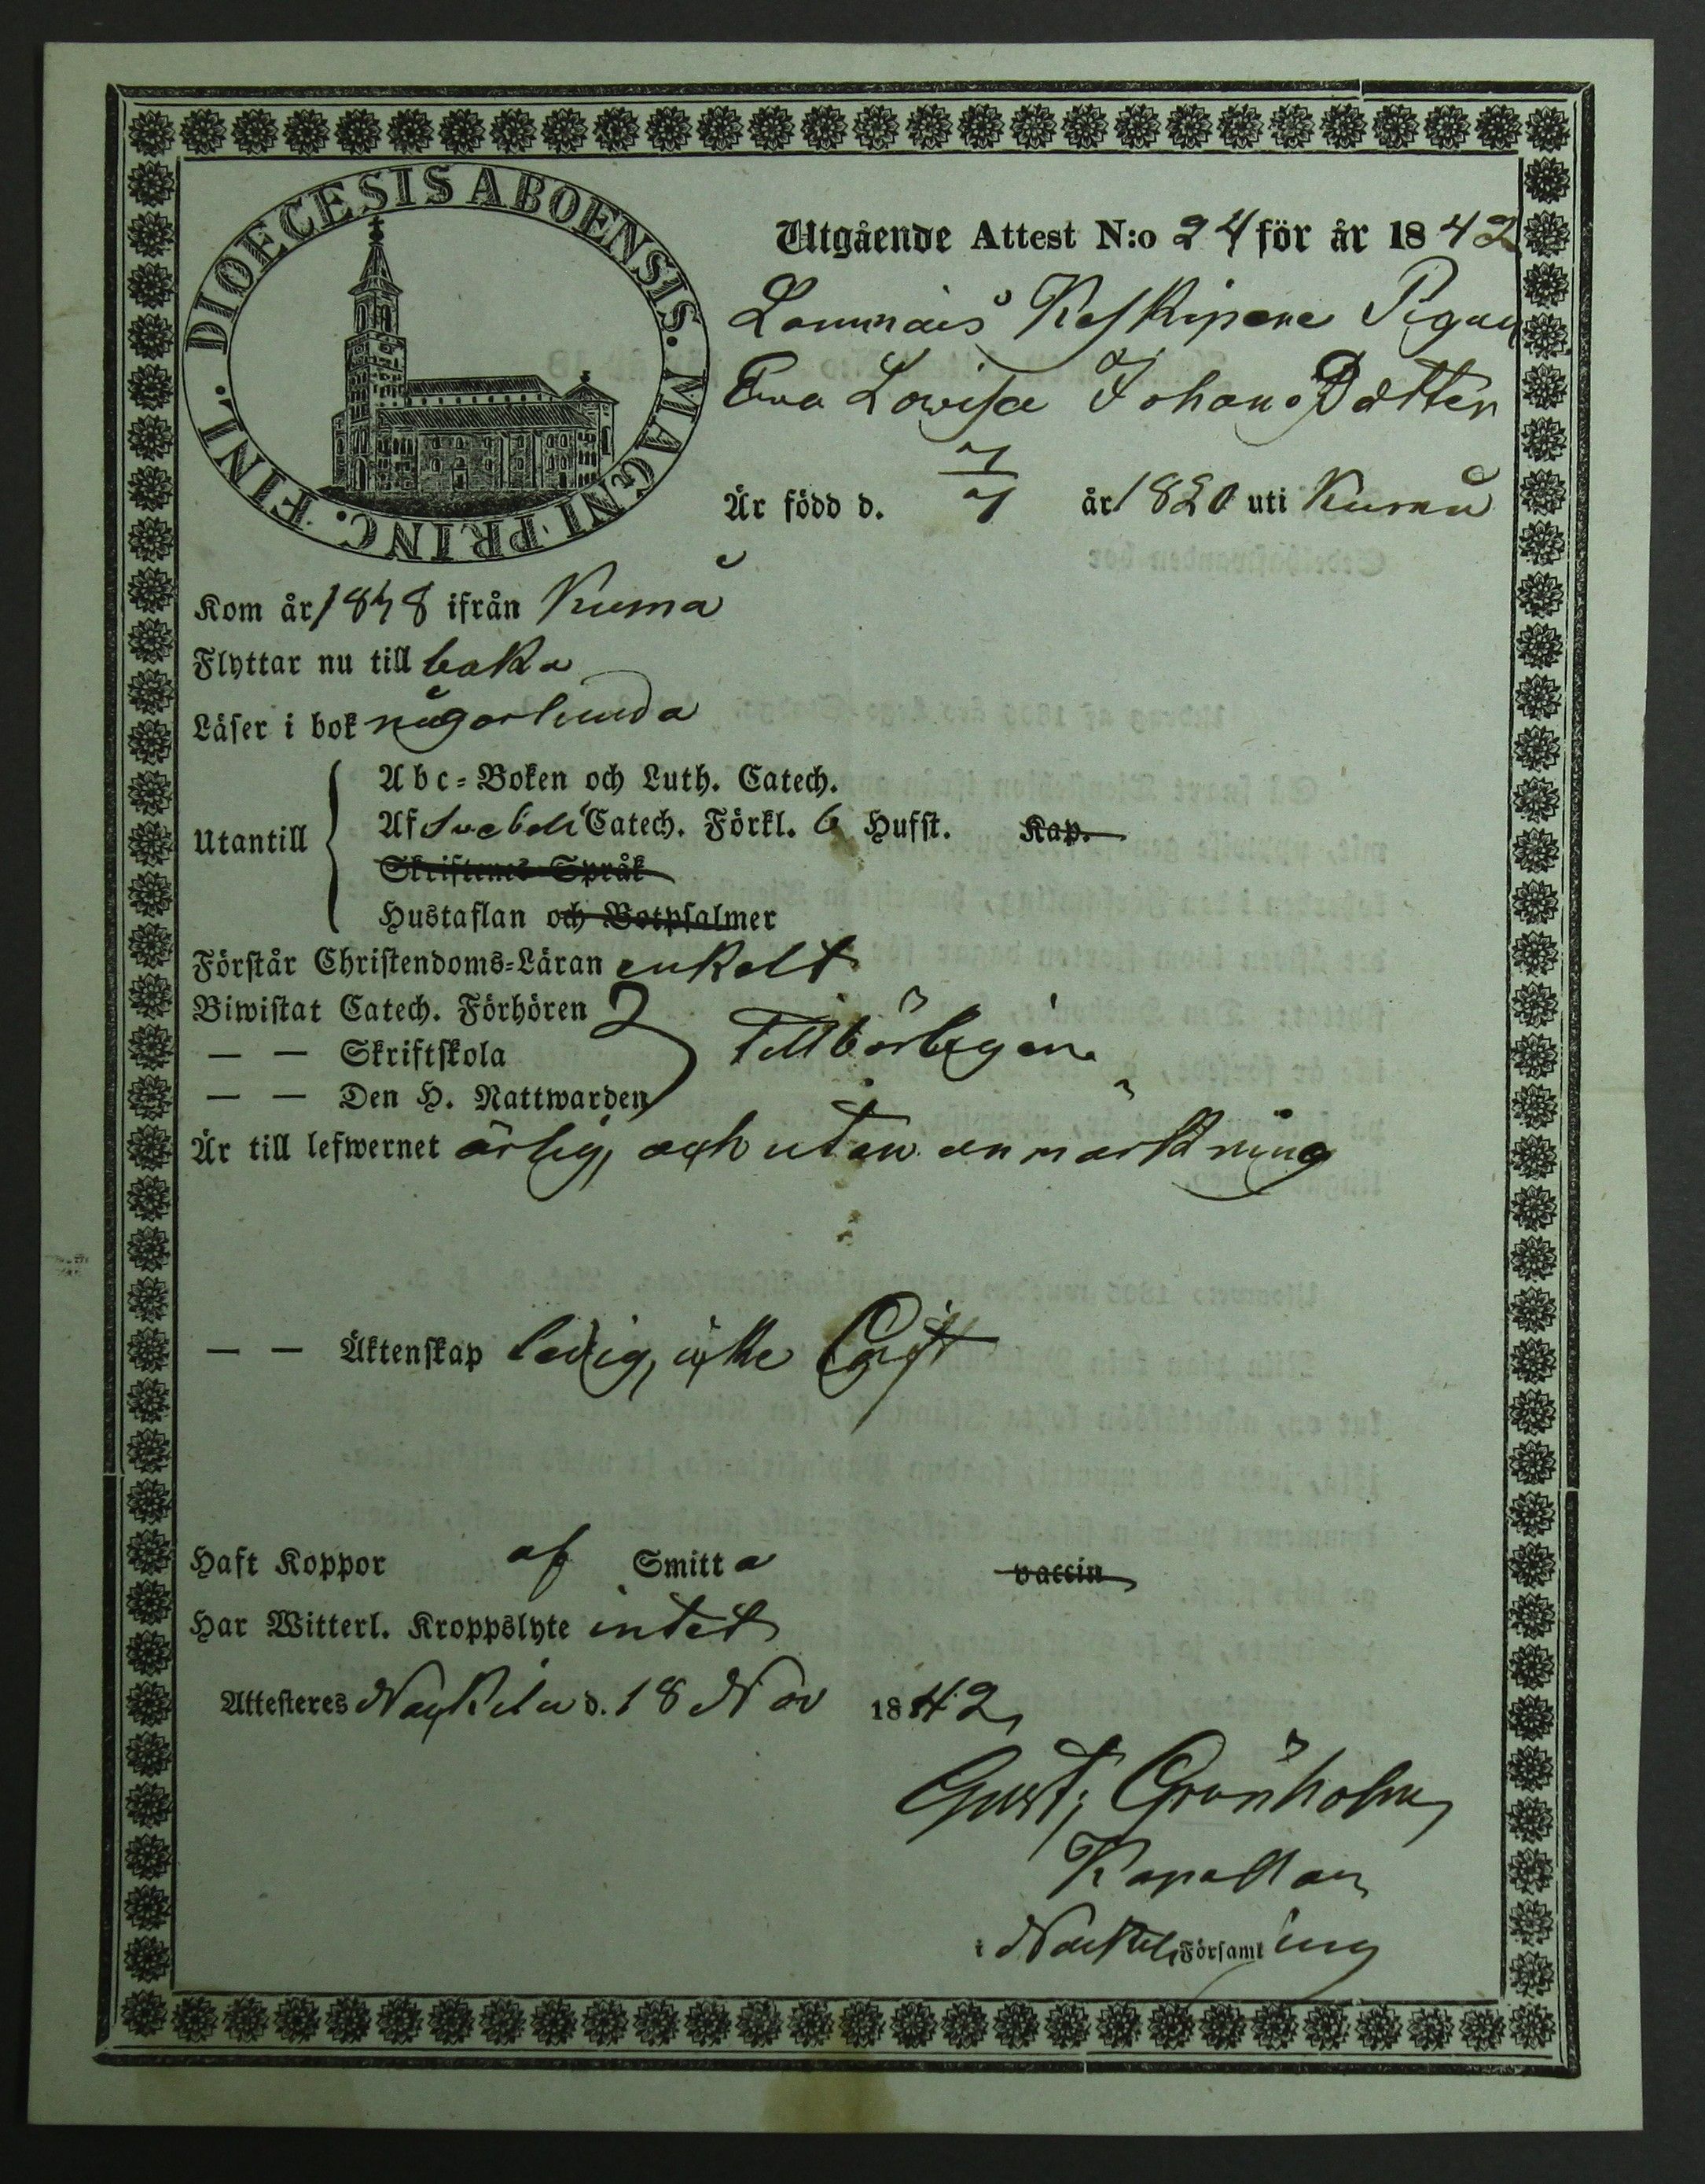 DIOECESIS ABOENSIS. MAGNI PRINC. FINL.
Utgående Attest N:o 24 för år 1842
Lammais Keskipere Pigan
Ewa Lovisa Johans Dotter
Är född d. 7/7 år 1820 uti Kumå
Kom år 1838 ifrån Kumå
Flyttar nu till baka
Läser i bok någorlunda
Utantill
Abc-Boken och Luth. Catech.
Af Svebeli Catech. Förkl. 6 Hufst. Kap.
Skriftenes Språk
Hustaflan och Botpsalmer
Förstår Christendoms-Läran enkelt
Biwistat Catech. Förhören
— — Skriftskola tillbörligen
— — Den H. Nattwarden
Är till lefwernet ärlig, och utan anmärkning
— — Äktenskap ledig, icke
Haft Koppor af Smitta vaccin
Har Witterl. Kroppslyte intet
Attesteres Nackila d. 18 Nov 1842
Gust; Grönholm
Kapellan
i Nackila Församling